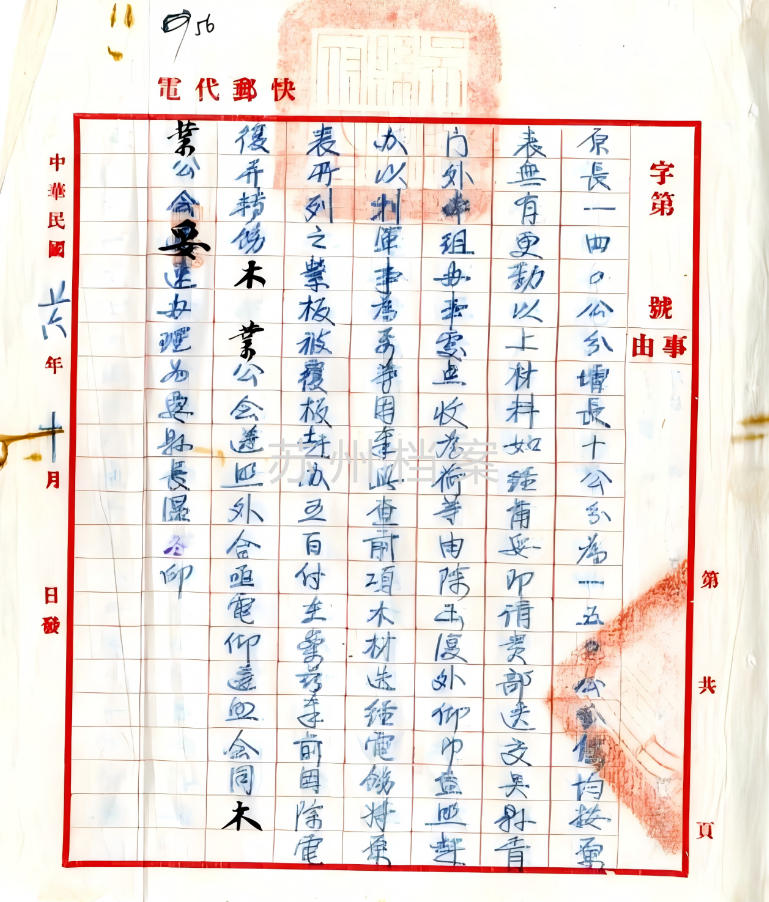 56
快郵代電
字第 號
事由
原長一四0公分增長十公分為一五0公分均按
表無有更動以上材料如經備妥即請貴部送交吳縣胥
門外本組办事處点收為荷等由除函復外仰即查照趕
办以利軍事為要等因奉此查前項木材迭經電飭將原
表所列之墊板被覆板趕办五百付在案茲奉前因除電
復并轉飭木業公會遵照外合亟電仰遵照會同木
業公會妥速办理為要縣長溫印
中華民國卅六年十月 日發
第 共 頁
苏州档案